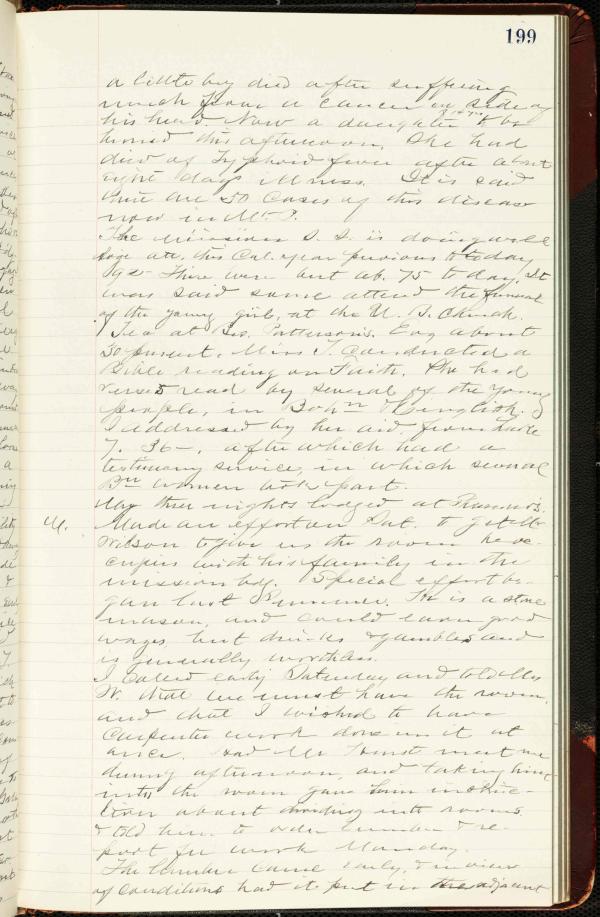 199
a little boy died after suffering
much from a cancer on side of
his head Now a daughter to be
buried this afternoon. She had
died of Typhoid fever after about
eight days illness. It is said
there are 50 cases of this disease
now in Mt. P.
The Mission S. S. is doing well
age att. this Cal. year previous to today
92 There were but ab. 75 to day. It
was said some attend the funeral
of the young girl, at the U. B. Church.
Tea at Bro. Patterson's. Eve about
30 present. Miss T. conducted a
Bible reading on Faith. She had
verses read by several of the young
people, in Boh'n & English.
I addressed by her aid from Luke
7. 36-, after which had a
testimony service, in which several
Bn women took part.
My three nights lodged at
M. Made an effort on Sat. to get Mr
Wilson to give us the room he oc-
cupies with his family in the
mission bdg. Special effort be-
gan last Summer. He is a stone
mason, and could earn good
wages, but drinks & gambles and
is generally worthless.
I called early Saturday and told Mrs
W. that we must have the room,
and that I wished to have
Carpenter work done in it at
once. Had Mr. Hurst meet me
during afternoon, and taking him
into the room gave him instruc-
tion about dividing into rooms.
& told him to order lumber & re-
port for work Monday.
The lumber came early, & in view
of conditions had it put in the adjacent